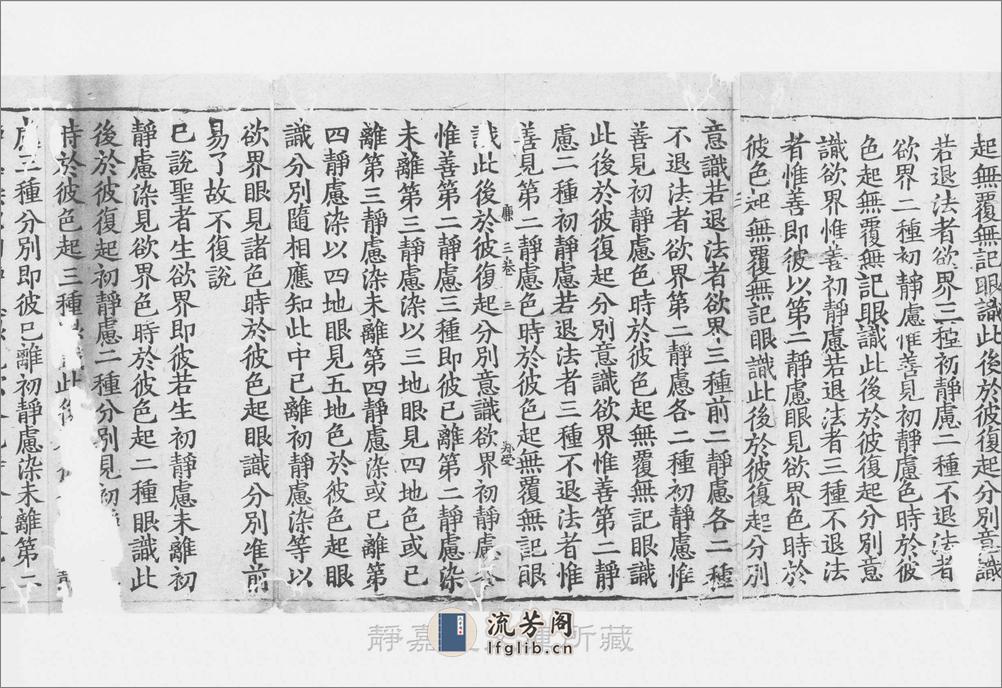 起無覆無記眼識此後於彼復起分別意識
若退法者欲界三種初靜慮二種不退法者
欲界二種初靜慮惟善見初靜慮色時於彼
色起無覆無記眼識此後於彼復起分別意
識欲界惟善初靜慮若退法者三種不退法
者惟善即彼以第二靜慮眼見欲界色時於
彼色起無覆無記眼識此後於彼復起分別
意識若退法者欲界三種前二靜慮各二種
不退法者欲界第二靜慮各二種初靜慮惟
善見初靜慮色時於彼色起無覆無記眼識
此後於彼復起分別意識欲界惟善第二靜
慮二種初靜慮若退法者三種不退法者惟
善見第二靜慮色時於彼色起無覆無記眼
三卷 三
識此後於彼復起分別意識欲界初靜慮
惟善第二靜慮三種即彼已離第二靜慮染
未離第三靜慮染以三地眼見四地色或已
離第三靜慮染未離第四靜慮染或已離第
四靜慮染以四地眼見五地色於彼色起眼
識分別隨相應知此中已離初靜慮染等以
欲界眼見諸色時於彼色起眼識分別准前
易了故不復說
已說聖者生欲界即彼若生初靜慮未離初
靜慮染見欲界色時於彼色起二種眼識此
後於彼復起初靜慮二種分別見初
時於彼色起三種 此
三種分別即彼已離初靜慮染未離第二
靜嘉 所藏
流芳阁
lfglib.cn